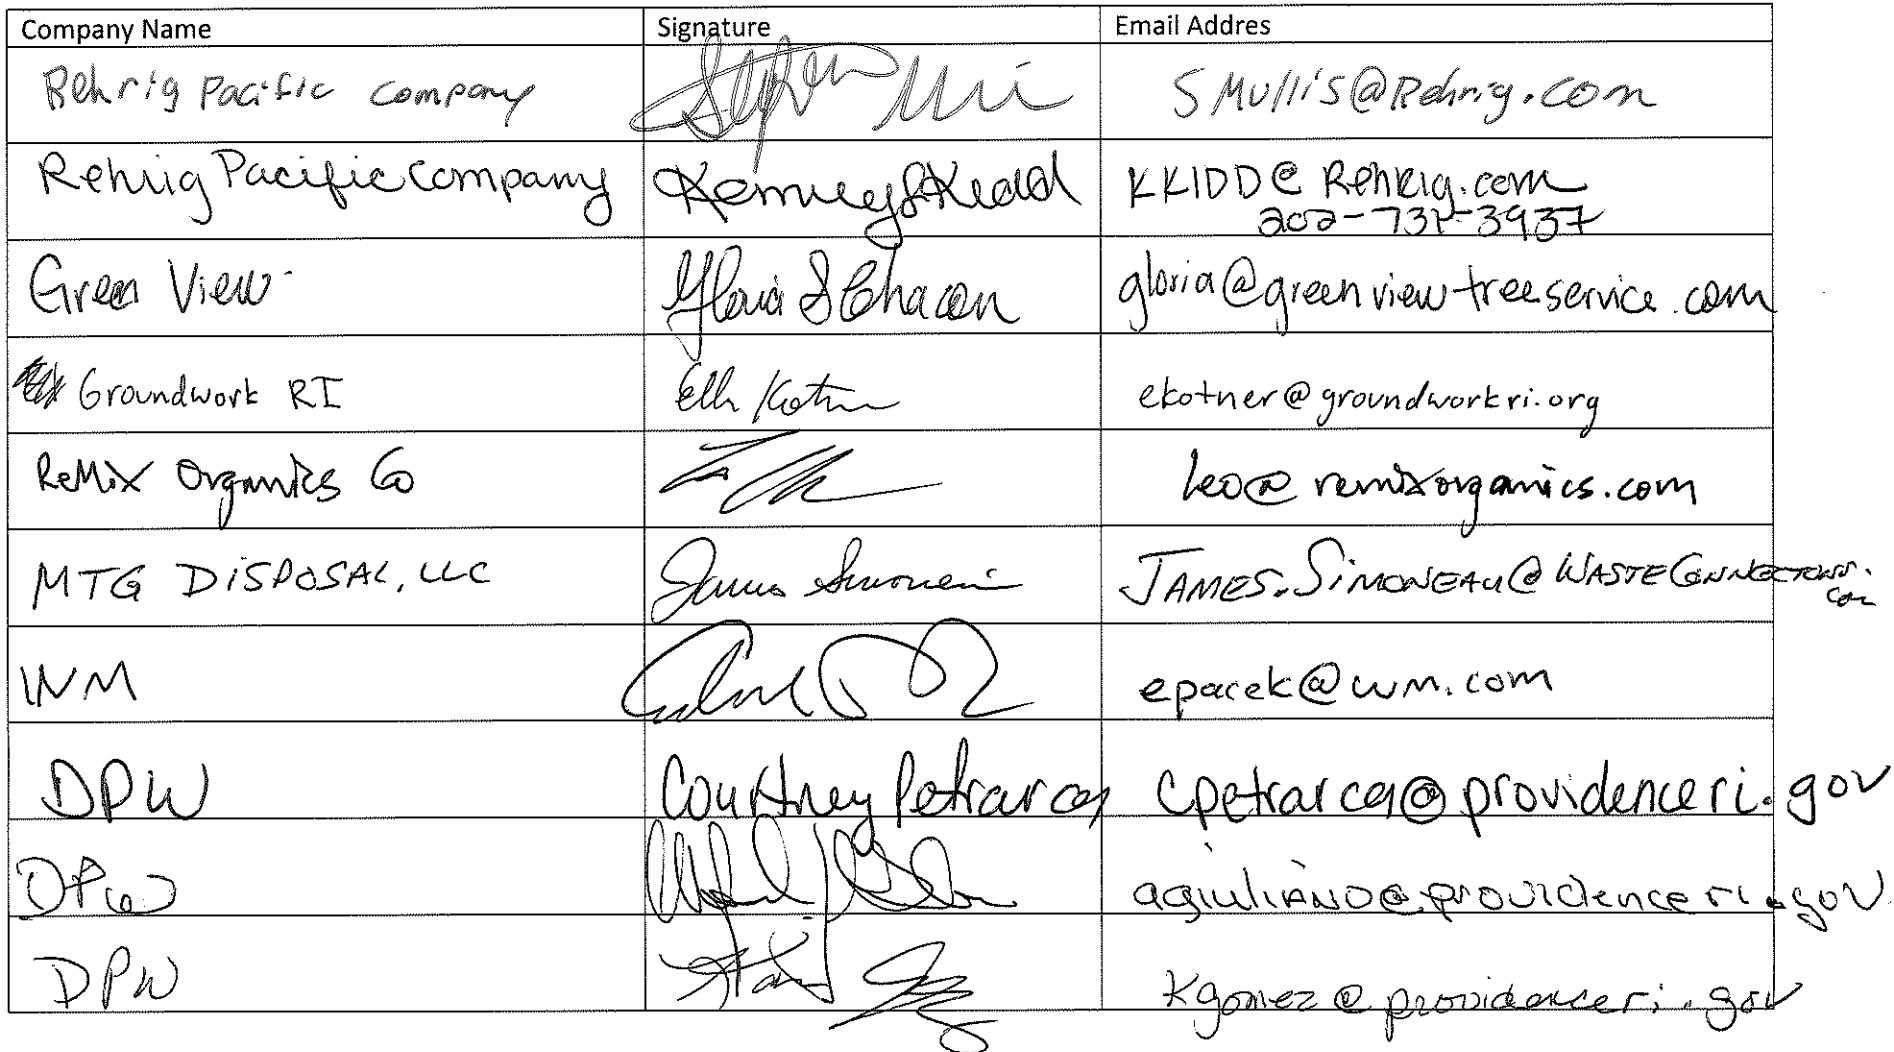 Company Name Signature Email Addres
Rehrig Pacific Company Stephen SMullis@Rehrig.com
Rehrig Pacific Company KKIDD@Rehrig.com
202-731-3937
Green View Gloria S Chacon gloria@greenviewtreeservice.com
Groundwork RI Ella Kotner ekotner@groundworkri.org
ReMix Organics Co leo@remixorganics.com
MTG DISPOSAL, LLC James Simoneau JAMES.SIMONEAU@WASTECONNECTIONS.
com
WM epacek@wm.com
DPW Courtney Petrarca cpetrarca@providenceri.gov
DPW agiuliano@providenceri.gov
DPW Kgomez@providenceri.gov